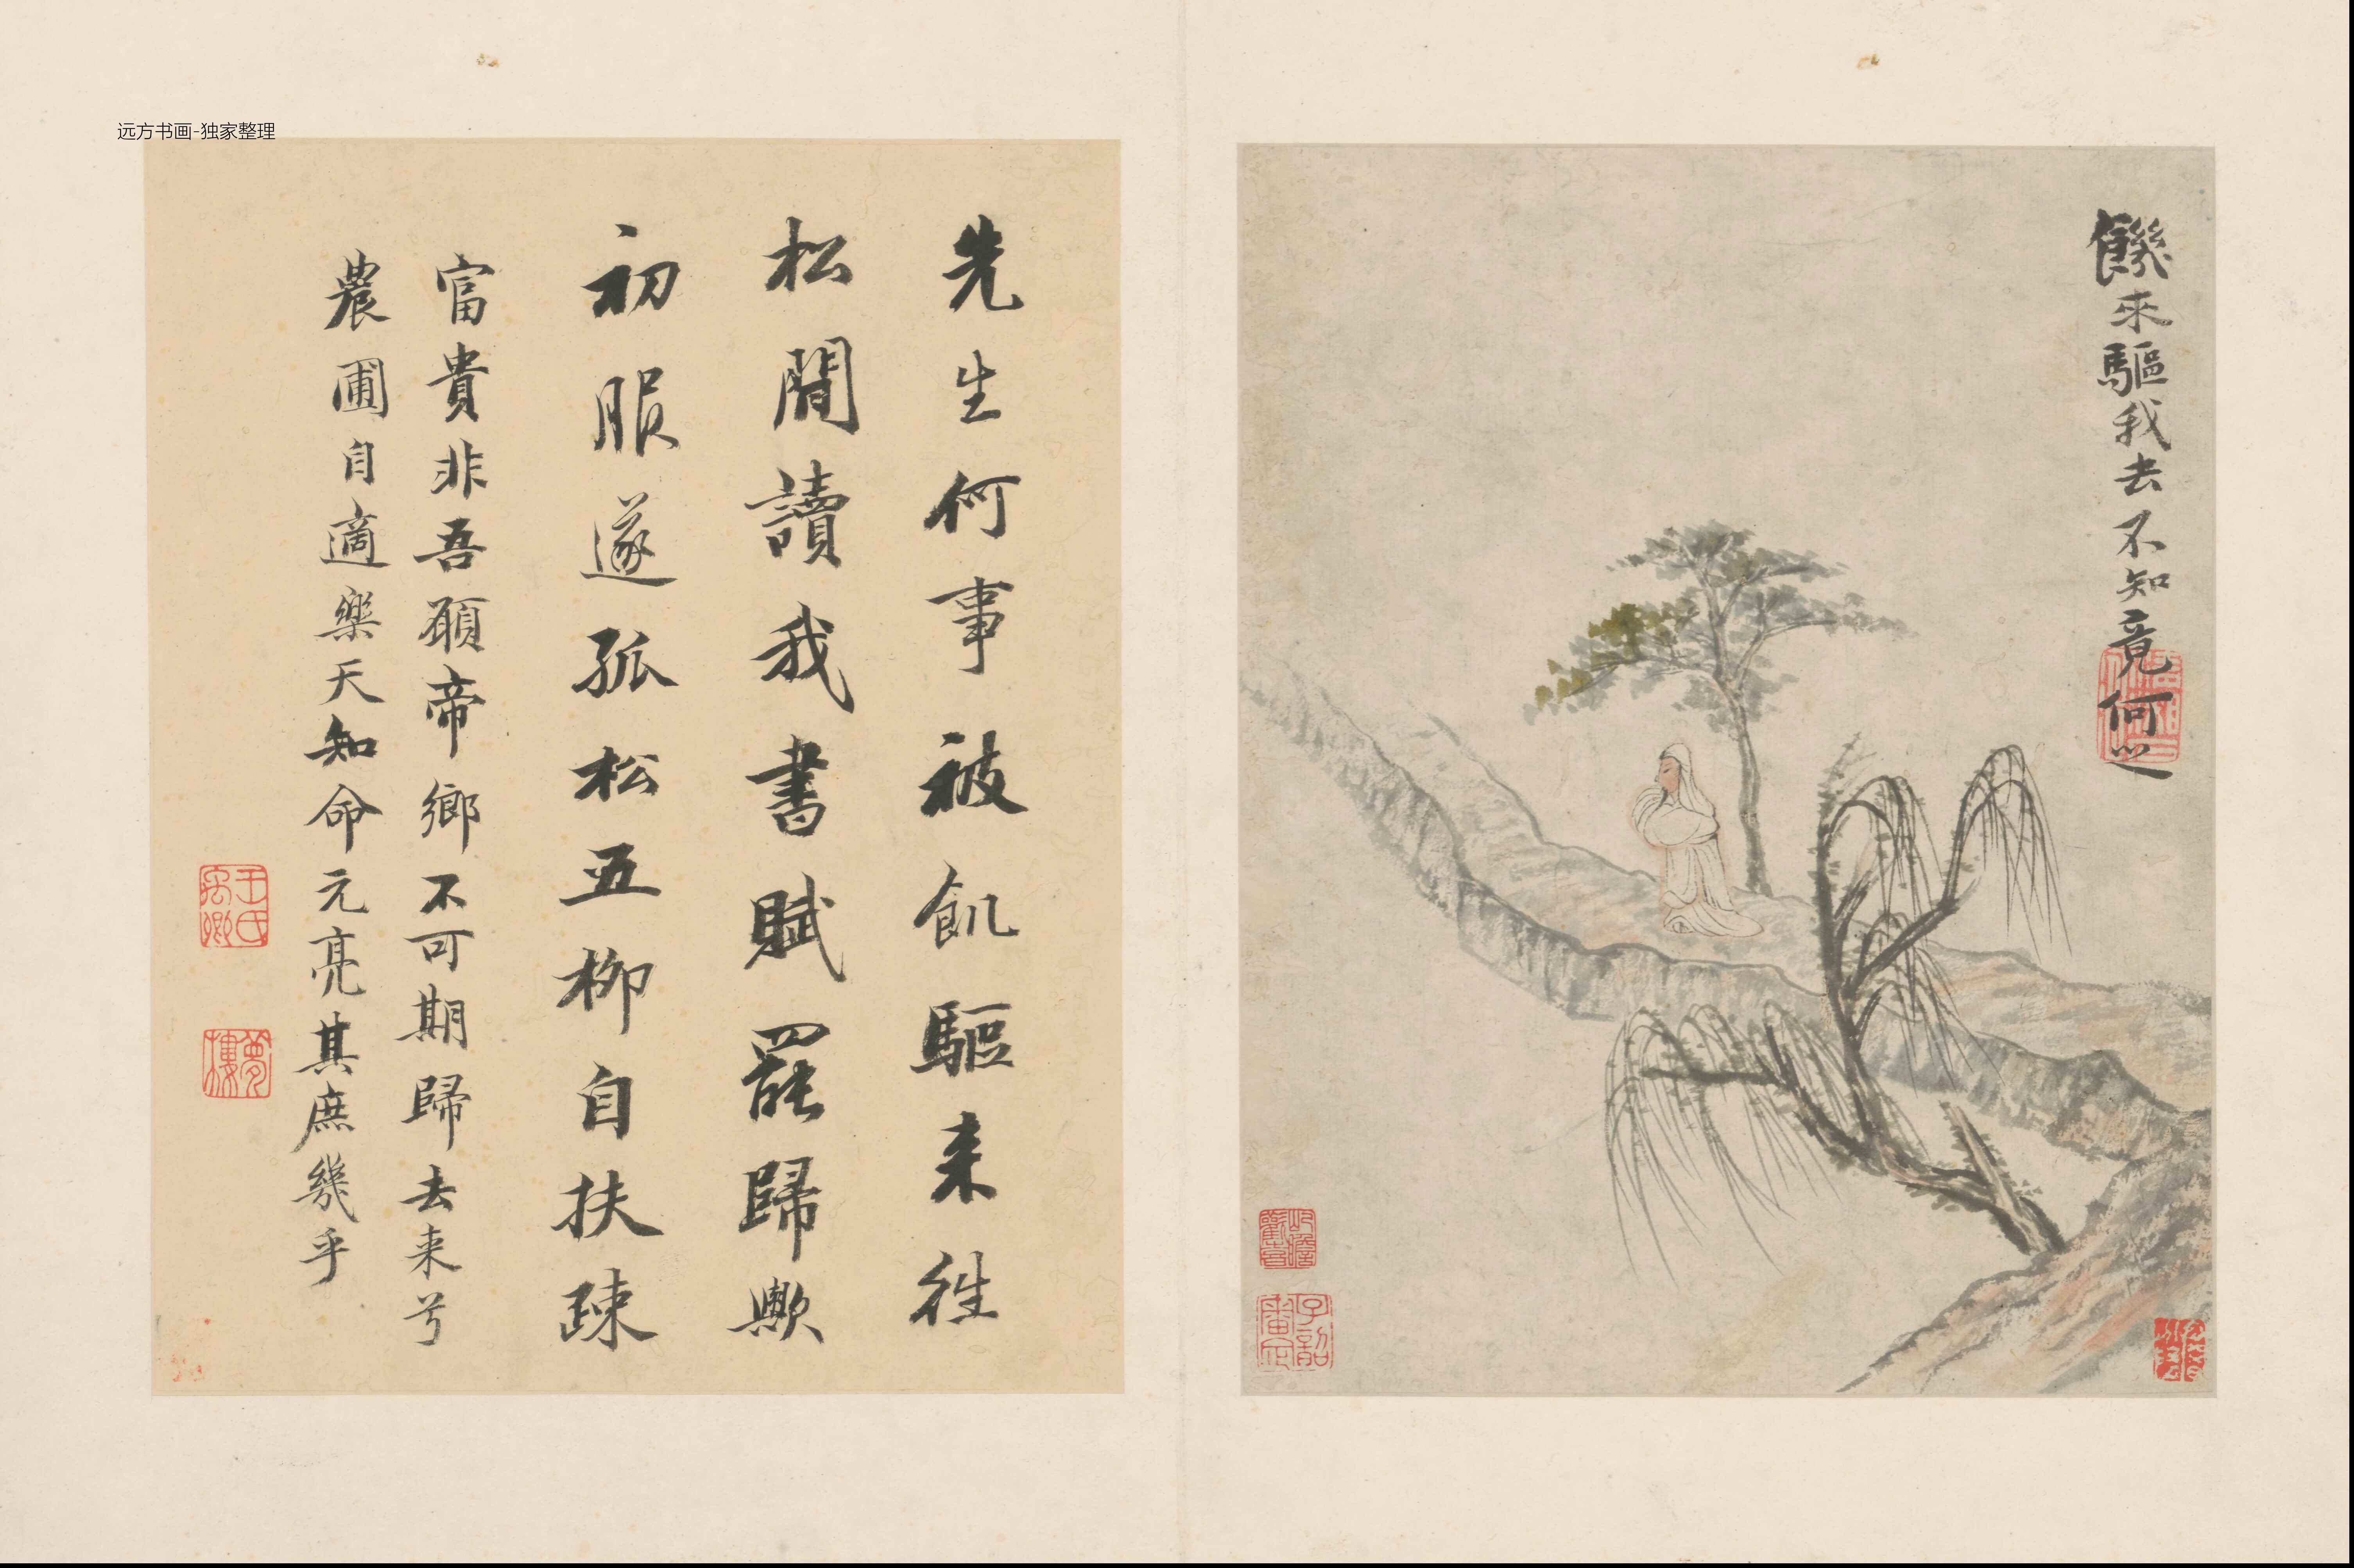 远方书画-独家整理
饑来驅我去不知竟何之
先生何事被飢驅来往
松間讀我書賦罷歸歟
初服遂孤松五柳自扶疎
富貴非吾願帝鄉不可期歸去来兮
農圃自適樂天知命元亮其庶幾乎
王氏禹卿
夢樓